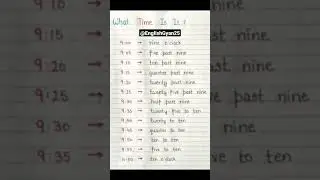 What Time Is It?
@EnglishGyan25
9:00 → nine o'clock
9:05 → five past nine
9:10 → ten past nine
9:15 → quarter past nine
9:20 → twenty past nine
9:25 → twenty five past nine
9:30 → half past nine
9:35 → twenty five to ten
9:40 → twenty to ten
9:45 → quarter to ten
9:50 → ten to ten
9:55 → five to ten
10:00 → ten o'clock